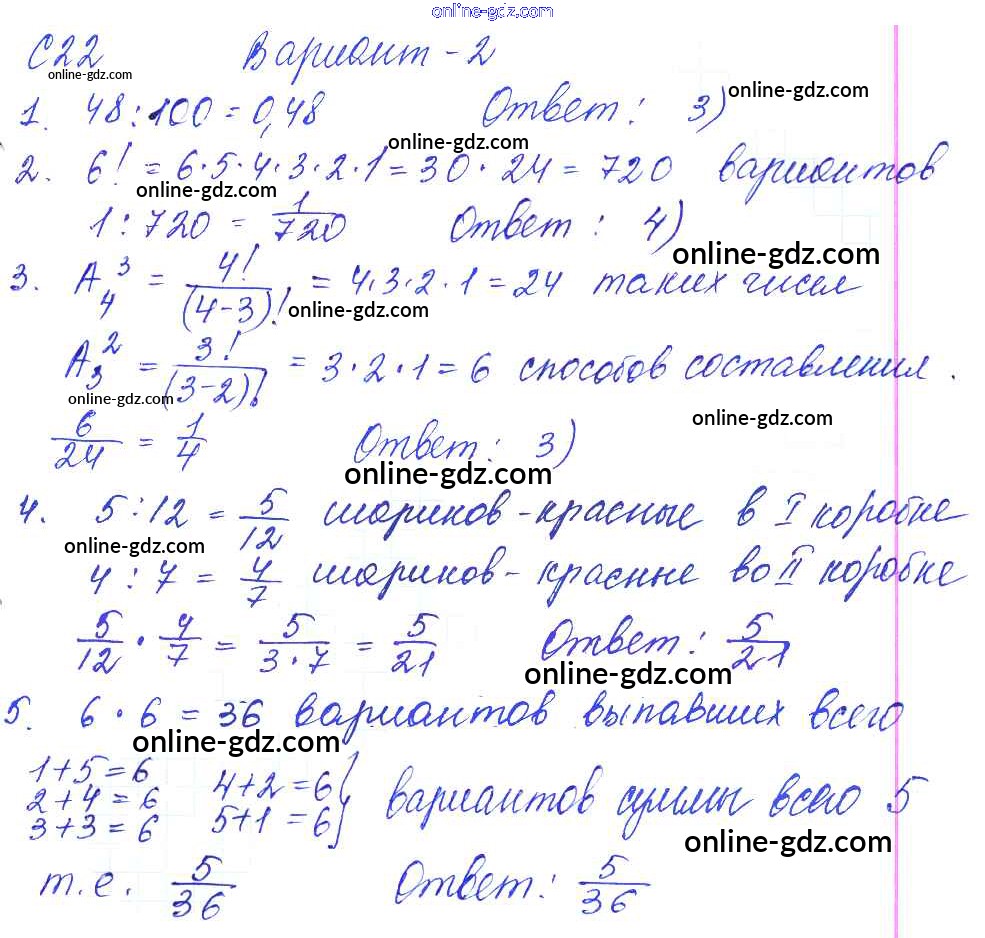 online-gdz.com
С22 Вариант - 2
online-gdz.com
1. 48 : 100 = 0,48 Ответ: 3)
online-gdz.com
online-gdz.com
2. 6! = 6·5·4·3·2·1 = 30 · 24 = 720 вариантов
online-gdz.com
1 : 720 = 1/720 Ответ: 4)
online-gdz.com
3. A₄³ = 4!/(4-3)! = 4·3·2·1 = 24 таких чисел
online-gdz.com
A₃² = 3!/(3-2)! = 3·2·1 = 6 способов составления.
online-gdz.com
online-gdz.com
6/24 = 1/4 Ответ: 3)
online-gdz.com
4. 5 : 12 = 5/12 шариков - красные в I коробке
online-gdz.com
4 : 7 = 4/7 шариков - красные во II коробке
5/12 · 4/7 = 5/(3·7) = 5/21 Ответ: 5/21
online-gdz.com
5. 6 · 6 = 36 вариантов выпавших всего
online-gdz.com
1+5 = 6 4+2 = 6
2+4 = 6 } вариантов суммы всего 5
3+3 = 6 5+1 = 6
online-gdz.com
т.е. 5/36 Ответ: 5/36